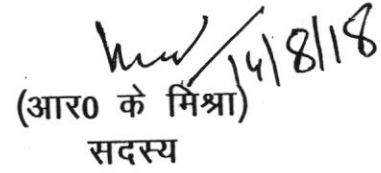 14/8/18
(आर0 के मिश्रा)
सदस्य